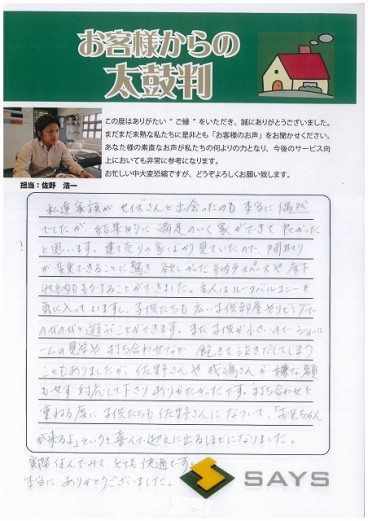 お客様からの
太鼓判
この度はありがたい"ご縁"をいただき、誠にありがとうございました。
まだまだ未熟な私たちに是非とも「お客様のお声」をお聞かせください。
あなた様の素直なお声が私たちの何よりの力となり、今後のサービス向
上においても非常に参考になります。
お忙しい中大変恐縮ですが、どうぞよろしくお願い致します。
担当：佐野 浩一
私達家族がセイズさんと出会ったのも本当に偶然
でしたが、結果的に満足のいく家ができて良かった
と思います。建て売りの家ばかり見ていたので間取り
が変更できることに驚き欲しかった収納スペースや床下
収納ももうけることができました。主人はルーフバルコニーを
気に入っていますし、子供たちも広い子供部屋やリビングで
のびのびと遊ぶことができます。まだ子供が小さいのでショールー
ムの見学や打ち合わせなど飽きて泣きだしてしまう
こともありましたが、佐野さんや成嶋さんが嫌な顔
もせず対応して下さりありがたかったです。打ち合わせを
重ねる度に子供たちも佐野さんになついて、「お兄ちゃん
が来るよ」というと喜んで迎えに出るほどになりました。
実際住んでみて、とても快適です。
本当にありがとうございました。
SAYS